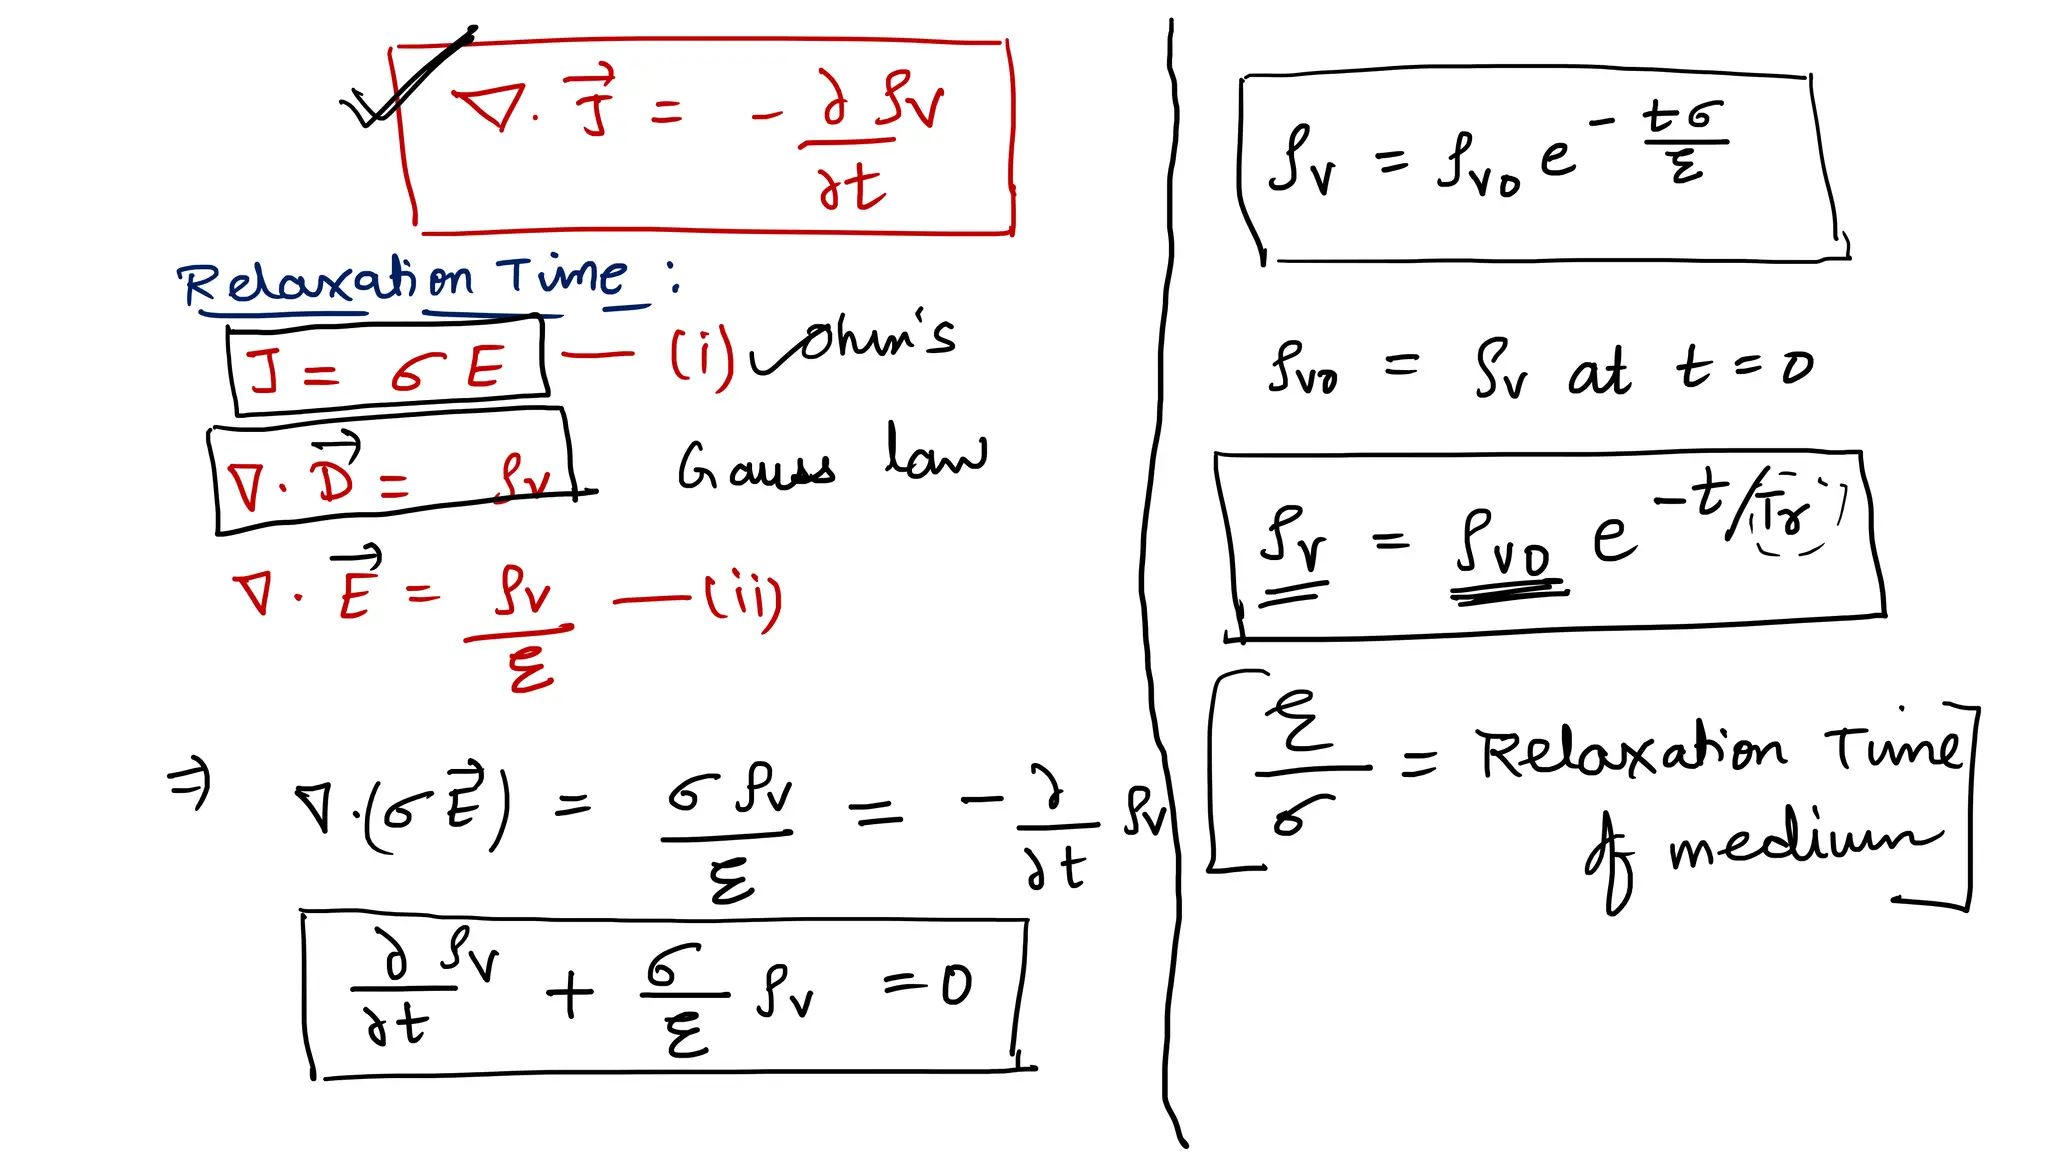 ∇. J⃗ = - ∂ρv/∂t
Relaxation Time :
J = σ E — (i) Ohm's
∇. D⃗ = ρv Gauss law
∇. E⃗ = ρv/ε — (ii)
⇒ ∇.(σE⃗) = σρv/ε = -∂/∂t ρv
∂ρv/∂t + σ/ε ρv = 0
ρv = ρvo e^(-tσ/ε)
ρvo = ρv at t = 0
ρv = ρvo e^(-t/Tr)
ε/σ = Relaxation Time
of medium